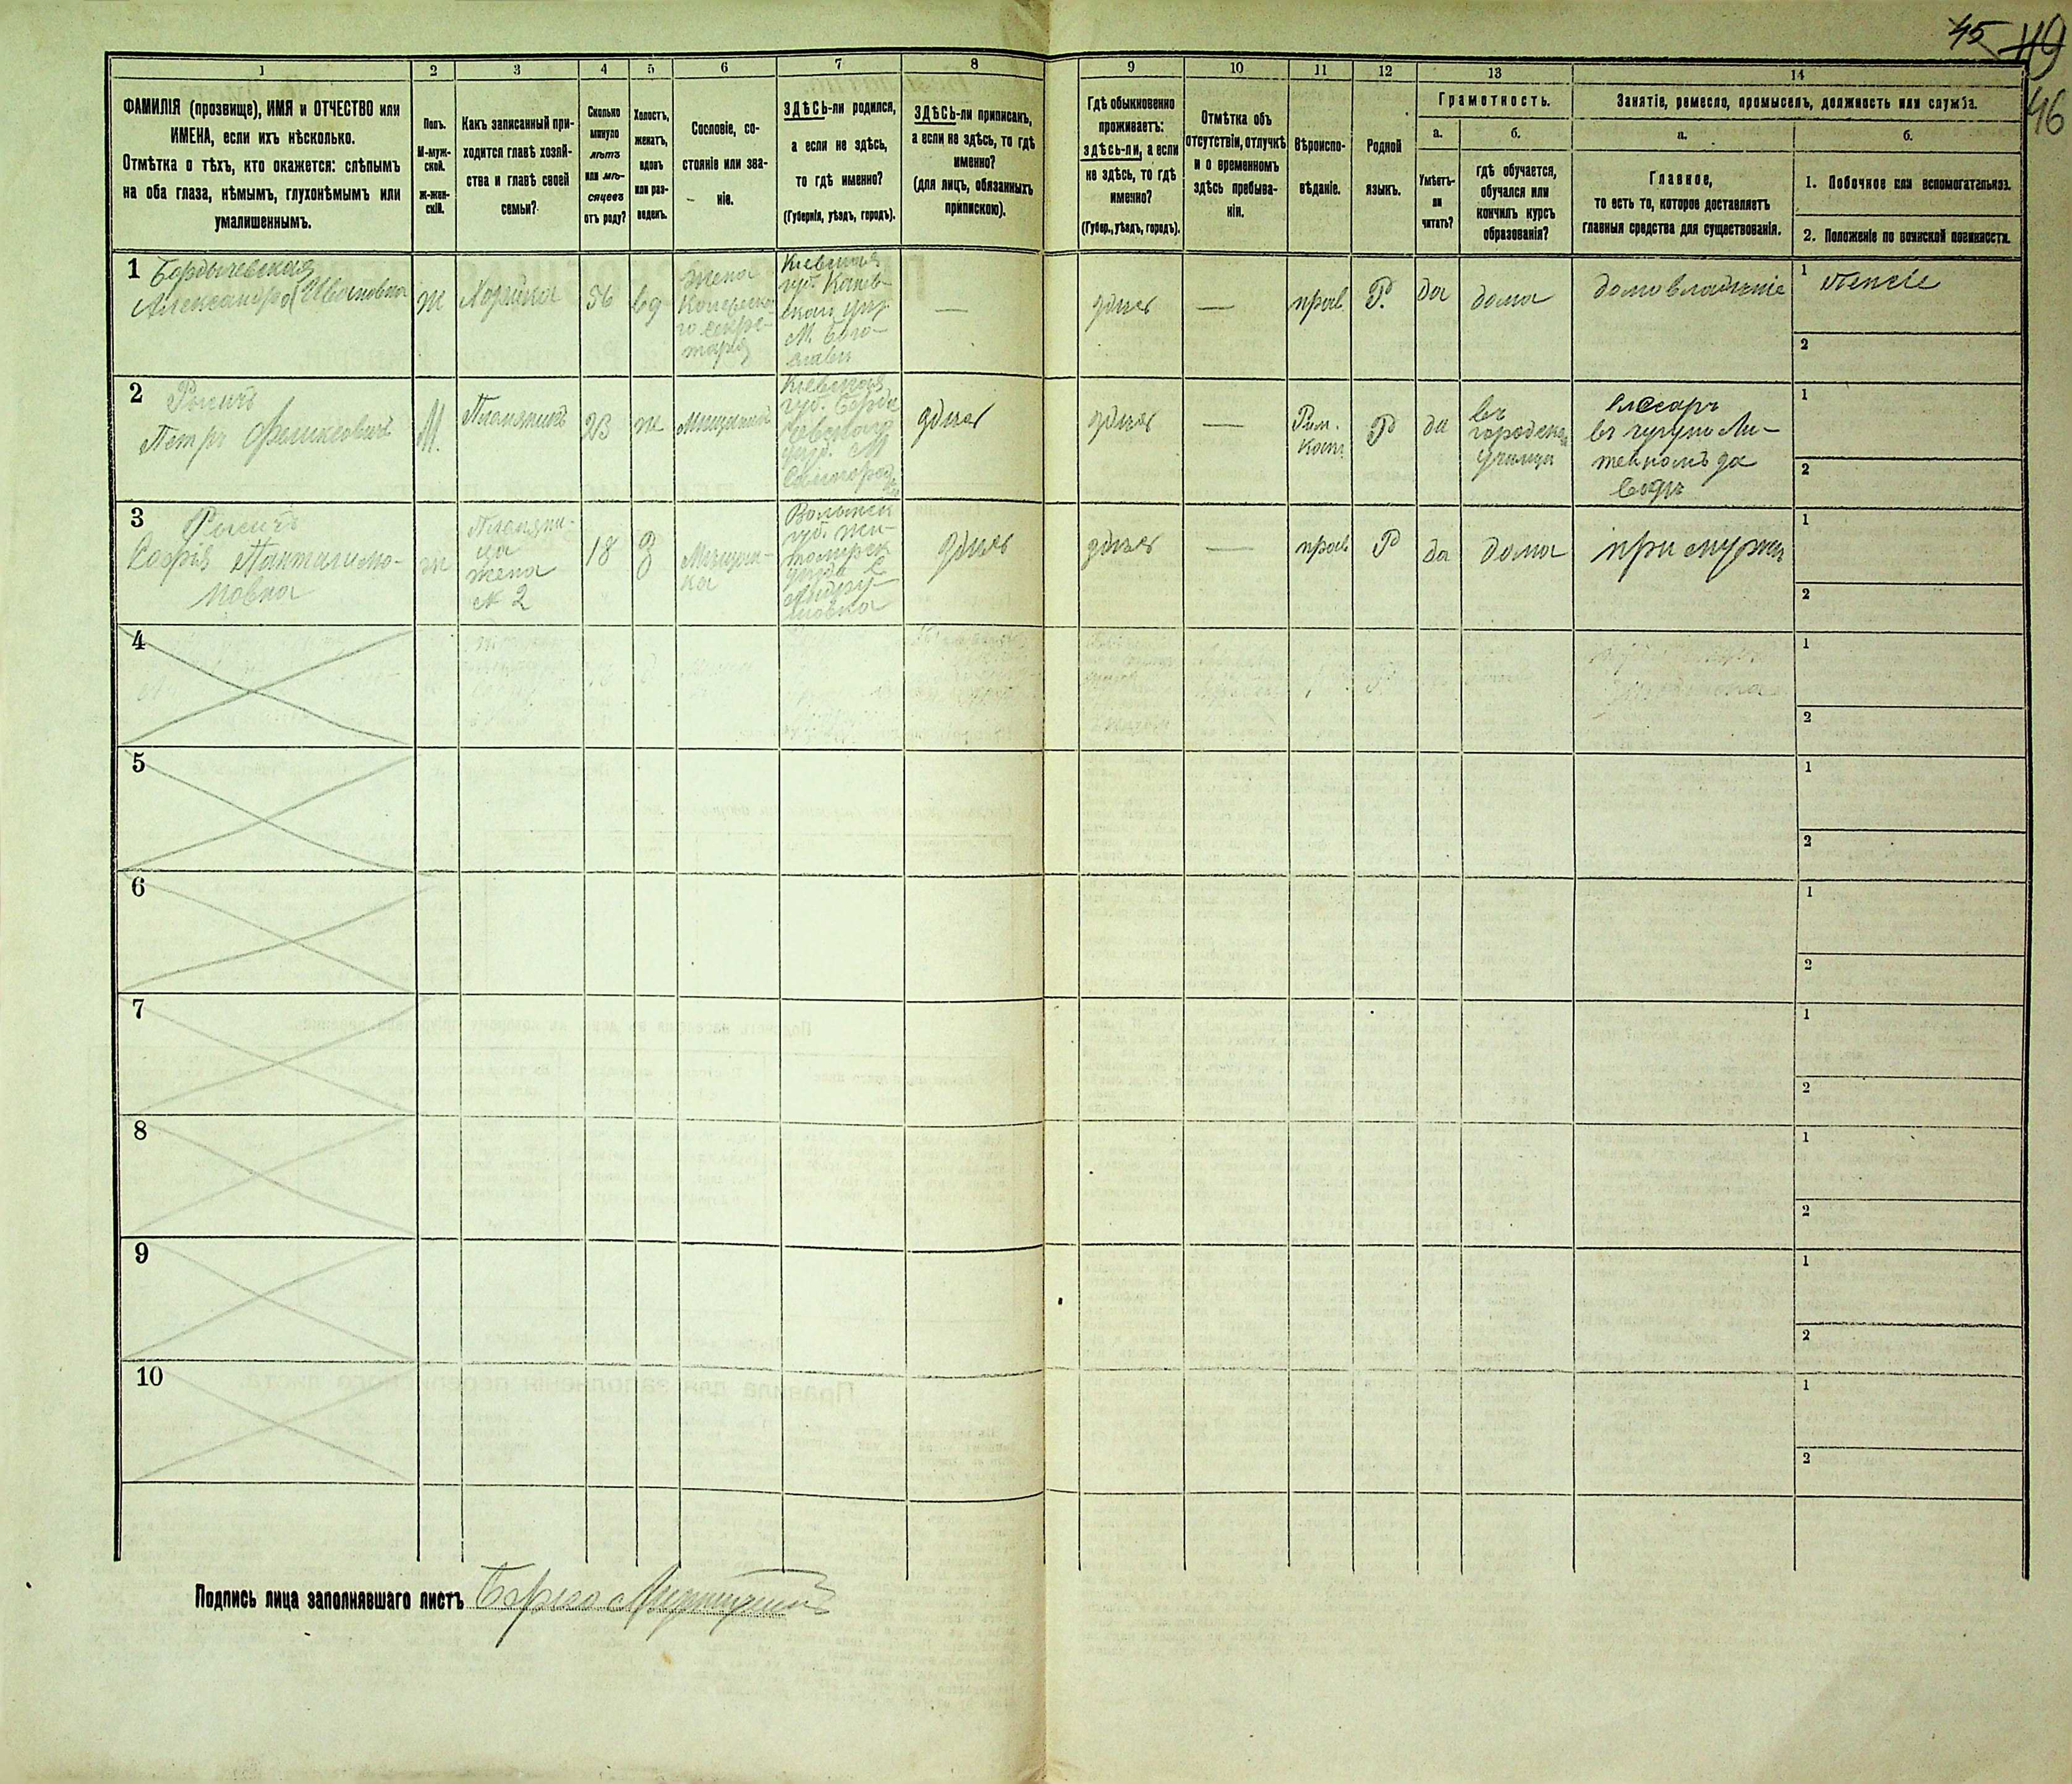 45 49
46
1 2 3 4 5 6 7 8 9 10 11 12 13 14
ФАМИЛІЯ (прозвище), ИМЯ и ОТЧЕСТВО или
ИМЕНА, если ихъ нѣсколько.
Отмѣтка о тѣхъ, кто окажется: слѣпымъ
на оба глаза, нѣмымъ, глухонѣмымъ или
умалишеннымъ.
Полъ.
М-муж-
ской.
Ж-жен-
скій.
Какъ записанный при-
ходится главѣ хозяй-
ства и главѣ своей
семьи?
Сколько
минуло
лѣтъ
или мѣ-
сяцевъ
отъ роду?
Холостъ,
женатъ,
вдовъ
или раз-
веденъ.
Сословіе, со-
стояніе или зва-
ніе.
ЗДѢСЬ-ли родился,
а если не здѣсь,
то гдѣ именно?
(Губернія, уѣздъ, городъ).
ЗДѢСЬ-ли приписанъ,
а если не здѣсь, то гдѣ
именно?
(для лицъ, обязанныхъ
припискою).
Гдѣ обыкновенно
проживаетъ:
здѣсь-ли, а если
не здѣсь, то гдѣ
именно?
(Губер., уѣздъ, городъ).
Отмѣтка объ
отсутствіи, отлучкѣ
и о временномъ
здѣсь пребыва-
ніи.
Вѣроиспо-
вѣданіе.
Родной
языкъ.
Грамотность.
а.
Умѣетъ-
ли
читать?
б.
гдѣ обучается,
обучался или
кончилъ курсъ
образованія?
Занятіе, ремесло, промыселъ, должность или служба.
а.
Главное,
то есть то, которое доставляетъ
главныя средства для существованія.
б.
1. Побочное или вспомогательное.
2. Положеніе по воинской повинности.
1
Бердычевская
Александра Ивановна
ж
Хозяйка
56
вд
Жена
Колежска
го секре-
таря
Кіевская
губ. Канев-
скаго уѣз
М. Бого-
славъ
—
здѣсь
—
прав
Р.
да
дома
домовладѣніе
1 пенсіе
2
2
Петръ Феликсовичъ
М.
Племянникъ
23
ж
Мѣщанинъ
Кіевская
губ. Берди
чевскаго
уѣзд. М
здѣсь
здѣсь
—
Рим.
Кат.
Р
да
въ
городско
училищ
слесарь
въ чугуно Ли-
тейномъ за
водѣ
1
2
3
Софія Панталимо-
новна
ж
Племянни-
ца
жена
№ 2
18
З
Мѣщан-
ка
Волынск
губ. Жи-
томирск
уѣзда С
здѣсь
здѣсь
—
прав
Р
да
дома
при мужѣ
1
2
4
1
2
5
1
2
6
1
2
7
1
2
8
1
2
9
1
2
10
1
2
Подпись лица заполнявшаго листъ